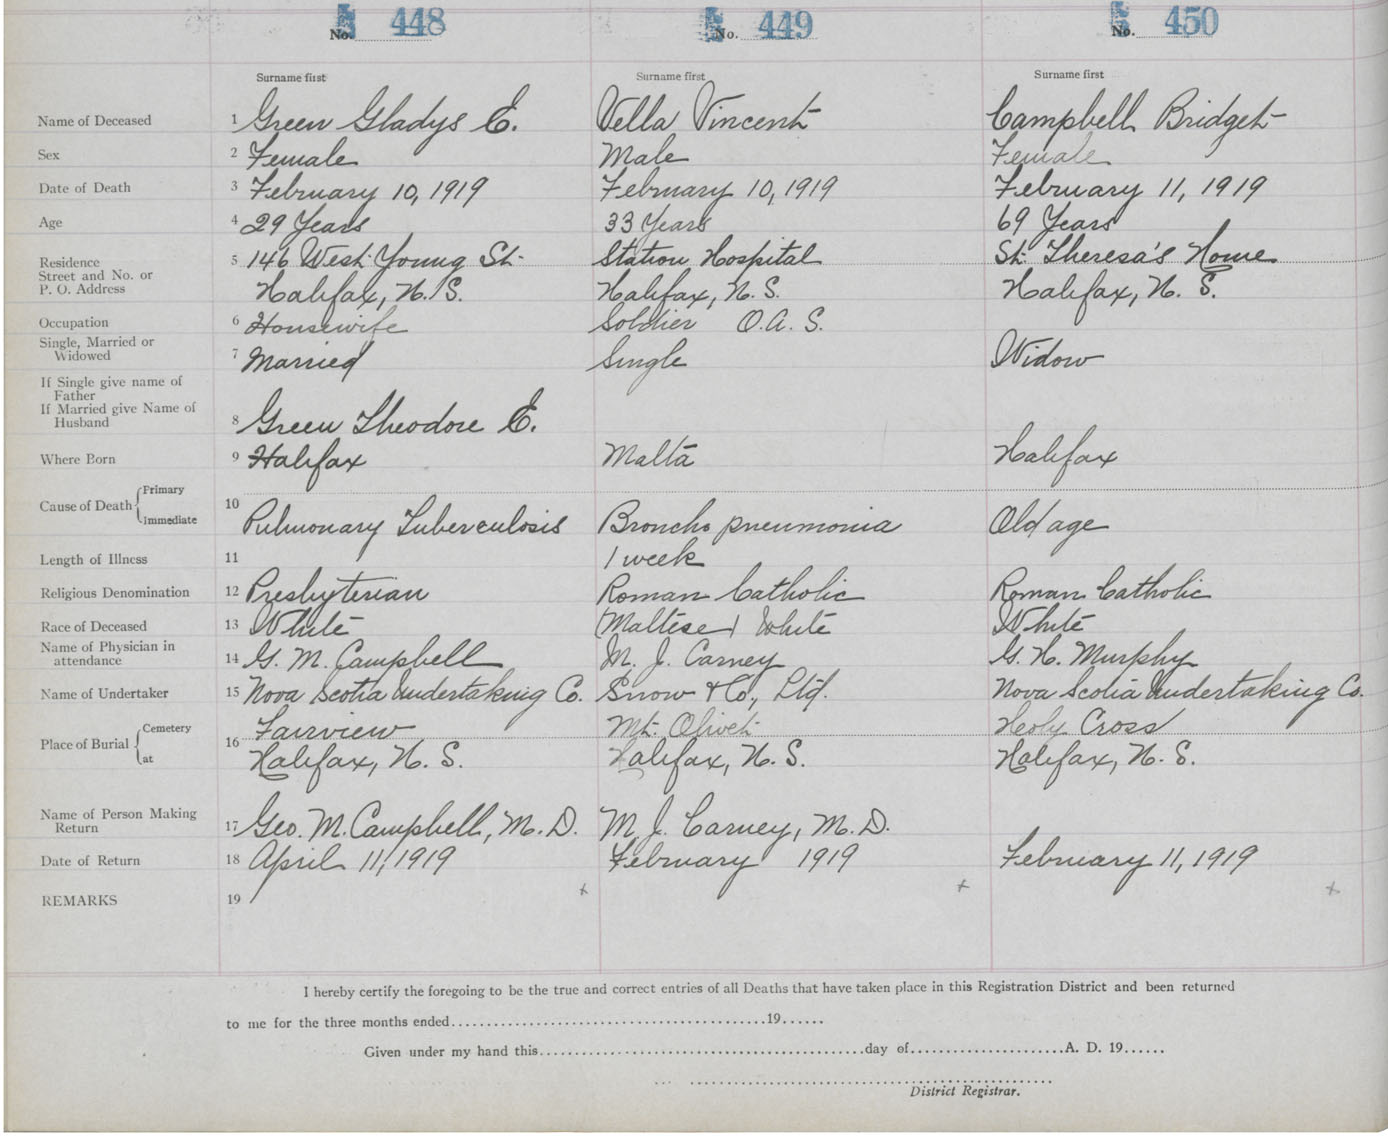 No. 448 No. 449 No. 450
Surname first Surname first Surname first
Name of Deceased 1 Green Gladys E. Vella Vincent Campbell Bridget
Sex 2 Female Male Female
Date of Death 3 February 10, 1919 February 10, 1919 February 11, 1919
Age 4 29 Years 33 Years 69 Years
Residence 5 146 West Young St. Station Hospital St. Theresa's Home
Street and No. or
P. O. Address Halifax, N. S. Halifax, N. S. Halifax, N. S.
Occupation 6 Housewife Soldier O.A.S.
Single, Married or
Widowed 7 Married Single Widow
If Single give name of
Father
If Married give Name of
Husband 8 Green Theodore E.
Where Born 9 Halifax Malta Halifax
Cause of Death { Primary
10
Immediate Pulmonary Tuberculosis Broncho pneumonia Old age
Length of Illness 11 1 week
Religious Denomination 12 Presbyterian Roman Catholic Roman Catholic
Race of Deceased 13 White (Maltese) White White
Name of Physician in
attendance 14 G. M. Campbell M. J. Carney G. H. Murphy
Name of Undertaker 15 Nova Scotia Undertaking Co. Snow & Co., Ltd. Nova Scotia Undertaking Co.
Place of Burial { Cemetery Fairview Mt. Olivet Holy Cross
16
at Halifax, N. S. Halifax, N. S. Halifax, N. S.
Name of Person Making
Return 17 Geo. M. Campbell, M. D. M. J. Carney, M. D.
Date of Return 18 April 11, 1919 February 1919 February 11, 1919
REMARKS 19 x x x
I hereby certify the foregoing to be the true and correct entries of all Deaths that have taken place in this Registration District and been returned
to me for the three months ended..........19......
Given under my hand this..........day of..........A. D. 19......
District Registrar.